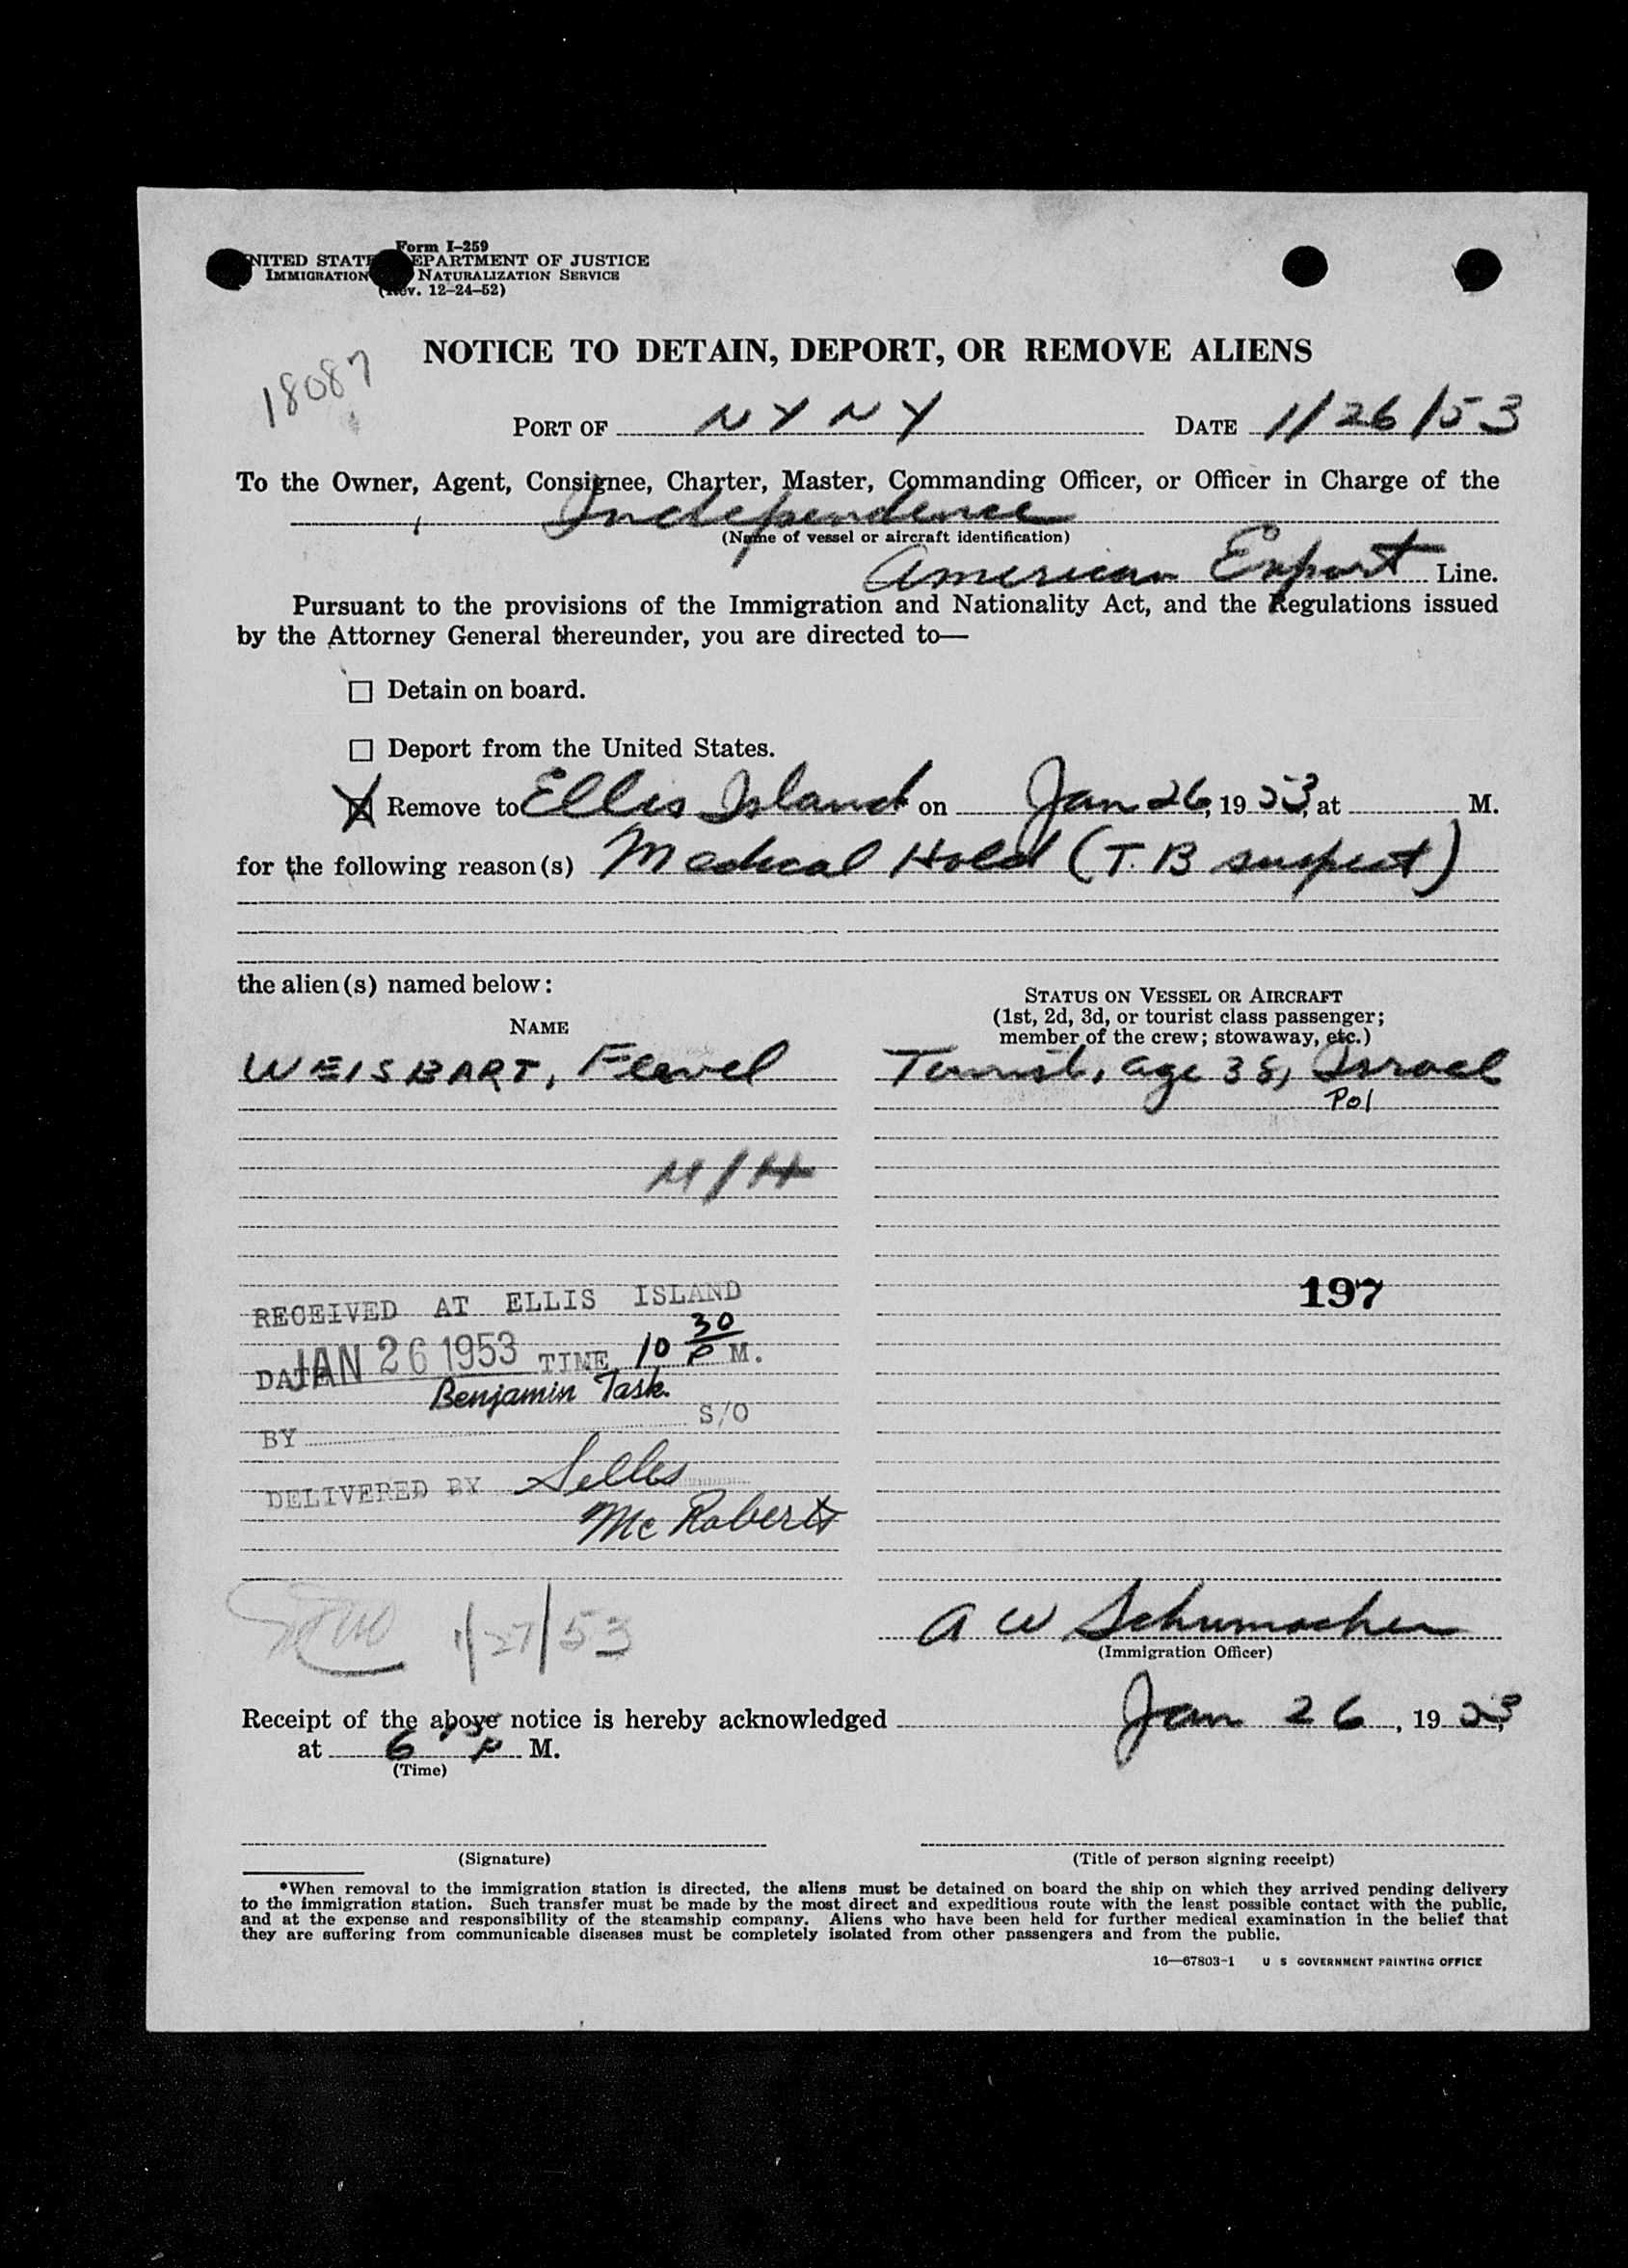 Form I-259
NITED STAT EPARTMENT OF JUSTICE
IMMIGRATION NATURALIZATION SERVICE
v. 12-24-52)
NOTICE TO DETAIN, DEPORT, OR REMOVE ALIENS
18087
PORT OF NY NY DATE 1/26/53
To the Owner, Agent, Consignee, Charter, Master, Commanding Officer, or Officer in Charge of the
Independence
(Name of vessel or aircraft identification)
American Export Line.
Pursuant to the provisions of the Immigration and Nationality Act, and the Regulations issued
by the Attorney General thereunder, you are directed to—
☐ Detain on board.
☐ Deport from the United States.
☒ Remove to Ellis Island on Jan 26, 1953, at M.
for the following reason(s) Medical Hold (T.B suspect)
the alien(s) named below:
NAME
STATUS ON VESSEL OR AIRCRAFT
(1st, 2d, 3d, or tourist class passenger;
member of the crew; stowaway, etc.)
WEISBART, Tourist, age 38, Israel
Pol
M/H
197
RECEIVED AT ELLIS ISLAND
DATE JAN 26 1953 TIME 10 30 P M.
Benjamin Task.
BY S/O
DELIVERED BY Selles
McRoberts
1/27/53
A W Schumacher
(Immigration Officer)
Receipt of the above notice is hereby acknowledged Jan 26, 1953,
at 6 P M.
(Time)
(Signature) (Title of person signing receipt)
*When removal to the immigration station is directed, the aliens must be detained on board the ship on which they arrived pending delivery
to the immigration station. Such transfer must be made by the most direct and expeditious route with the least possible contact with the public,
and at the expense and responsibility of the steamship company. Aliens who have been held for further medical examination in the belief that
they are suffering from communicable diseases must be completely isolated from other passengers and from the public.
16—67803-1 U S GOVERNMENT PRINTING OFFICE